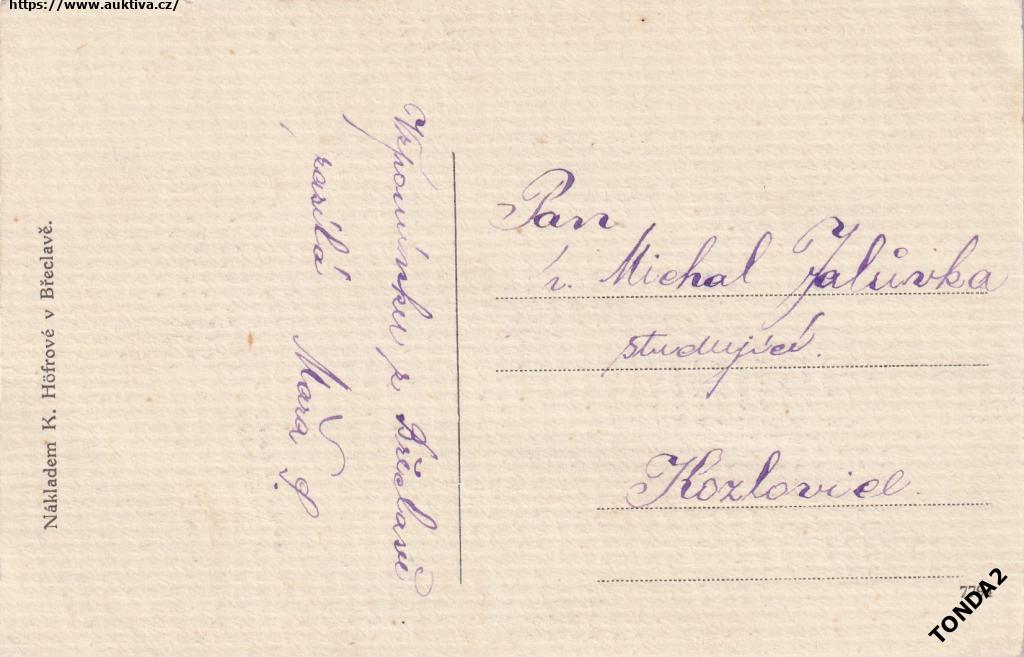 https://www.auktiva.cz/
Nákladem K. Höfrové v Břeclavě.
Vzpomínku z Břeclavě
zasílá Mařa
Pan
Michal Jalůvka
studující.
Kozlovice.
TONDA2